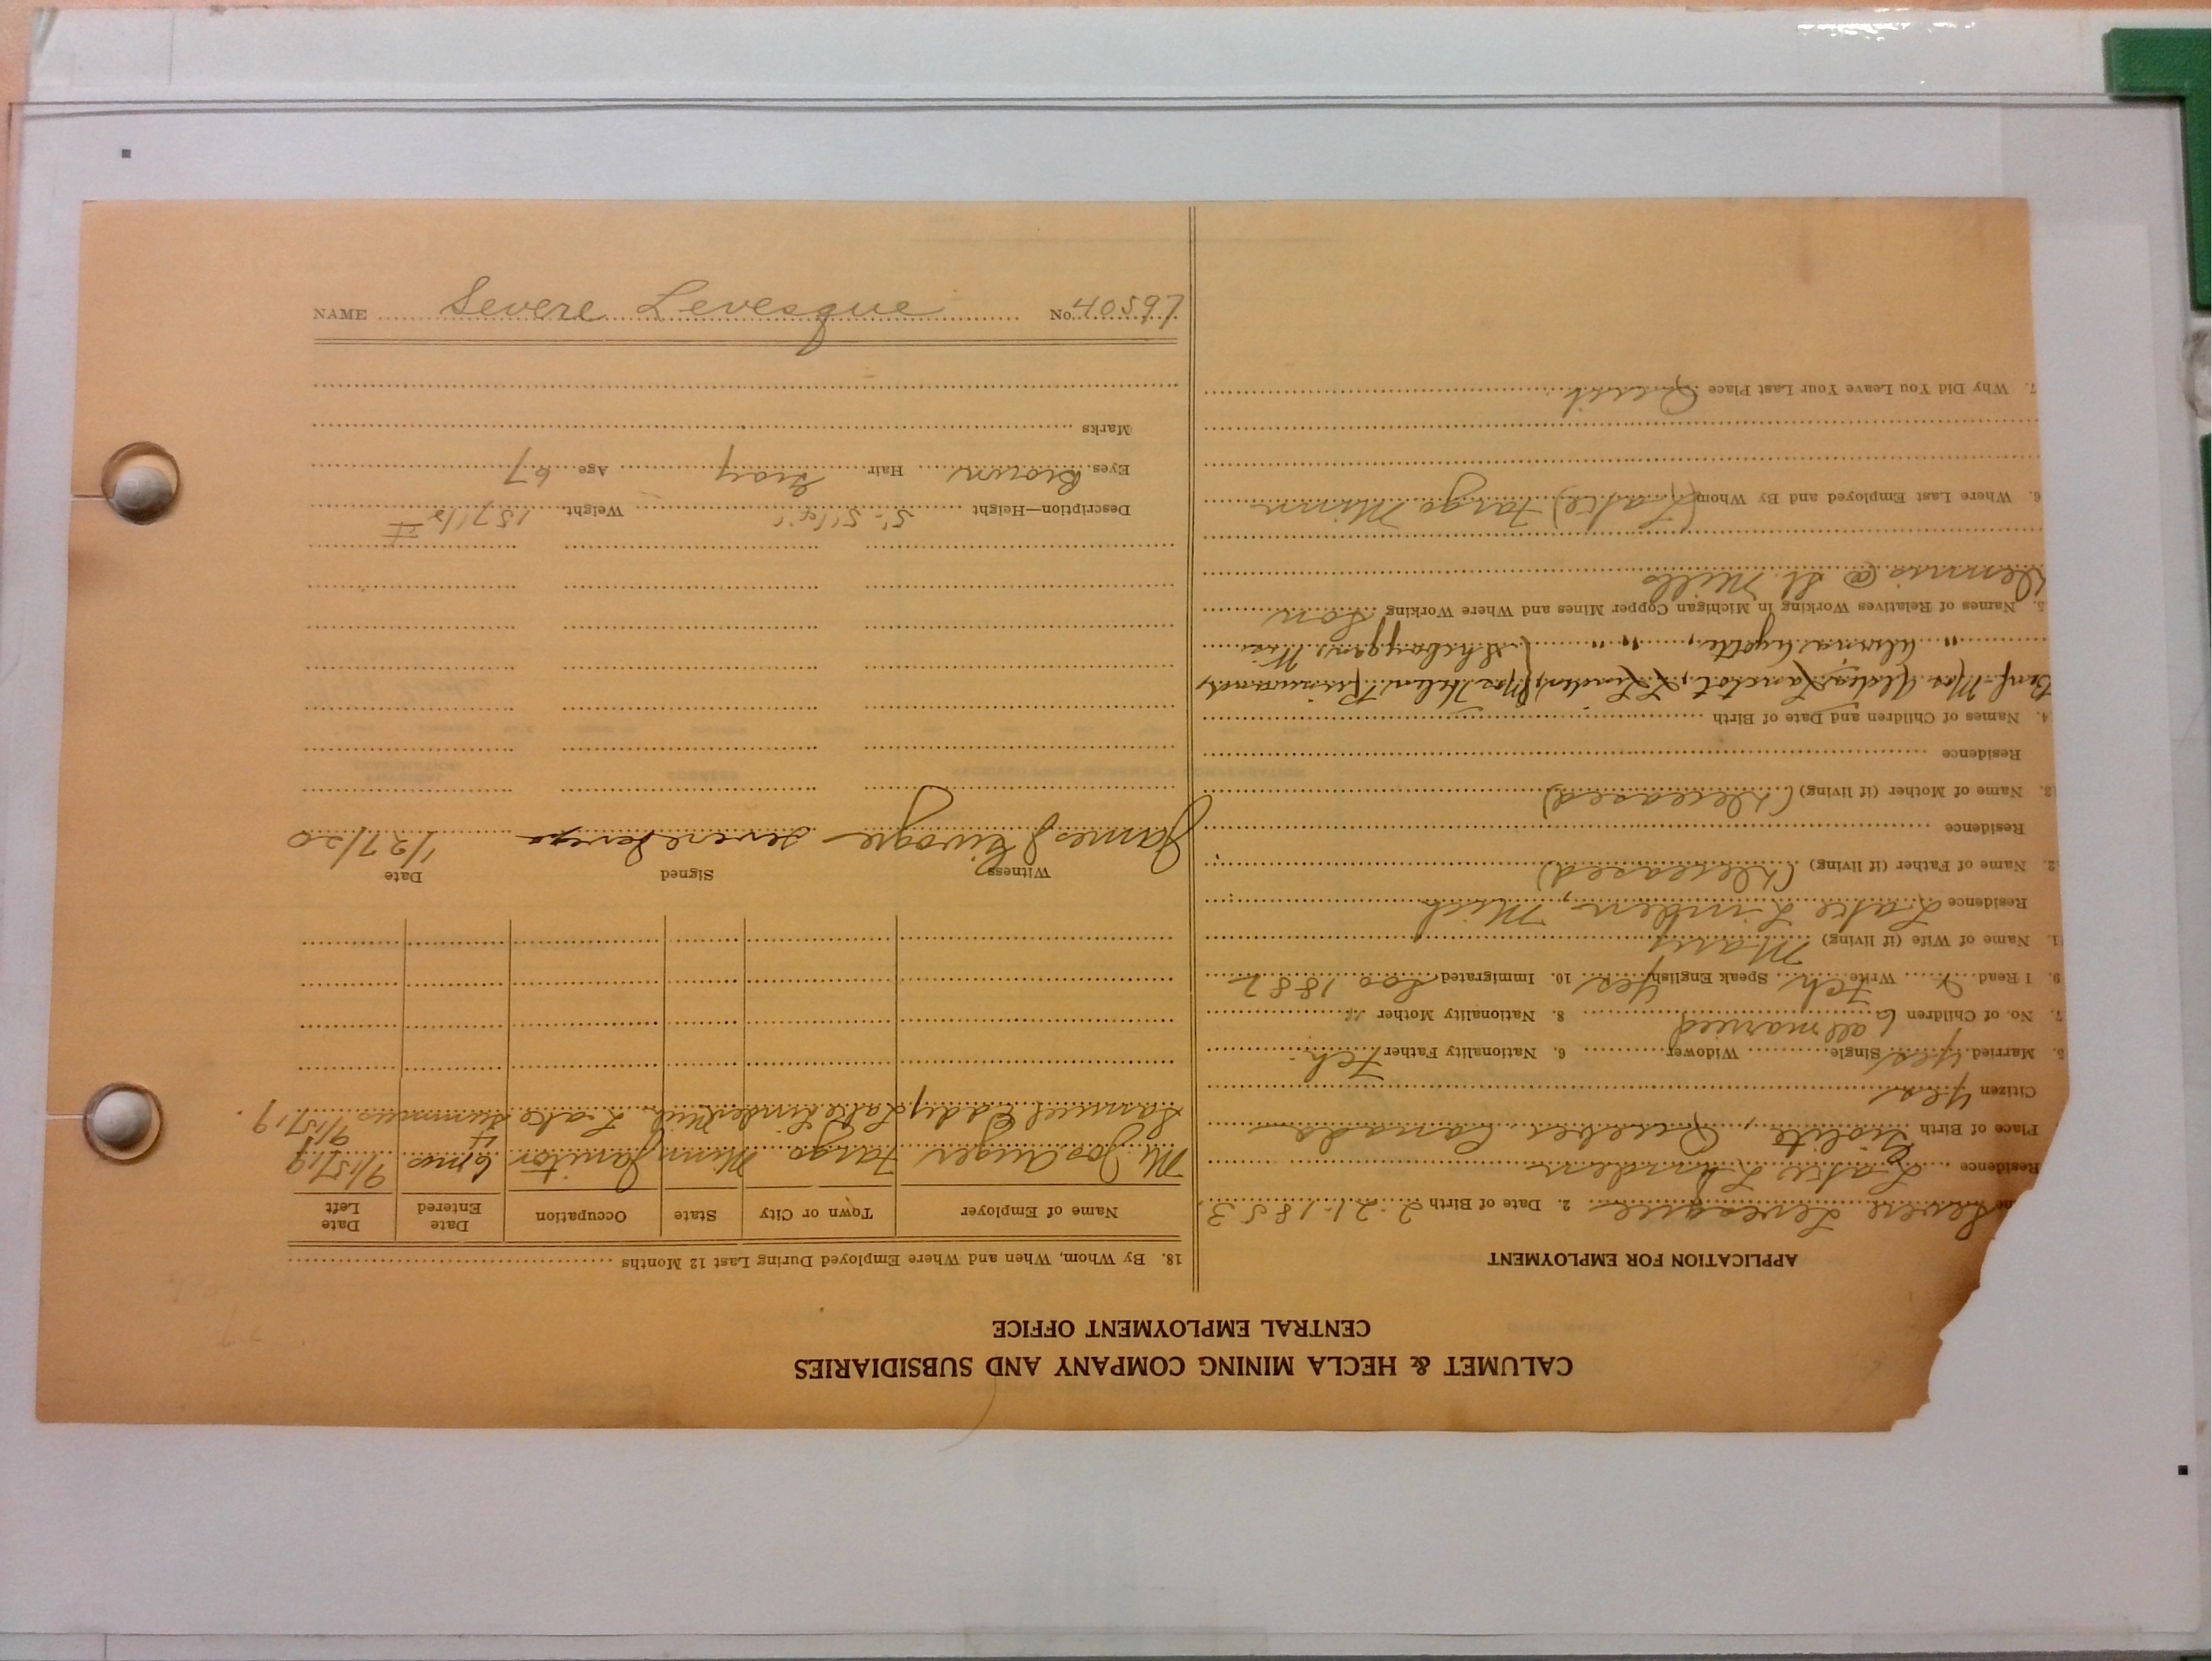 CALUMET & HECLA MINING COMPANY AND SUBSIDIARIES
CENTRAL EMPLOYMENT OFFICE
APPLICATION FOR EMPLOYMENT
me Severe Levesque 2. Date of Birth 2-21-1853.
Residence Lake Linden
Place of Birth Quebec Canada
Citizen Yes
5. Married Yes Single Widower 6. Nationality Father Fch.
7. No. of Children 6 all married 8. Nationality Mother "
9. I Read & Write Fch Speak English Yes 10. Immigrated Soo 1882
1. Name of Wife (if living) Mary
Residence Lake Linden, Mich
2. Name of Father (if living) (Deceased)
Residence
3. Name of Mother (if living) (Deceased)
Residence
4. Names of Children and Date of Birth
Lanctot, L. Linden, Mrs Helen
" " " Sheboygan, Wis
5. Names of Relatives Working in Michigan Copper Mines and Where Working Son
Dennis @ St. Mills
6. Where Last Employed and By Whom (Lake) Fargo Minn
7. Why Did You Leave Your Last Place Quit
18. By Whom, When and Where Employed During Last 12 Months
Name of Employer Town or City State Occupation Date Entered Date Left
Mr. Jos Auger Fargo Minn Janitor 6 mos 9/15/19
Samuel Eddy Lake Linden Mich. Lake 4 summers 9/15/19.
Witness Signed Date
James J 1/27/20
Description—Height 5'-5 1/4" Weight 157 1/2 #
Eyes Brown Hair Gray Age 67
Marks
NAME Severe Levesque No. 40597